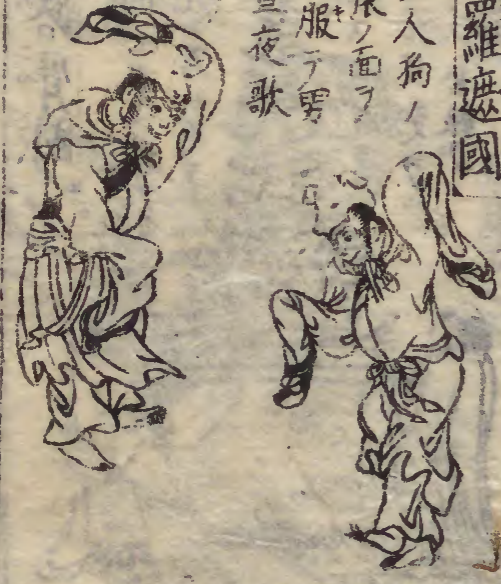 羅遮國
人狗ノ
ノ面ヲ
服キテ男
夜歌